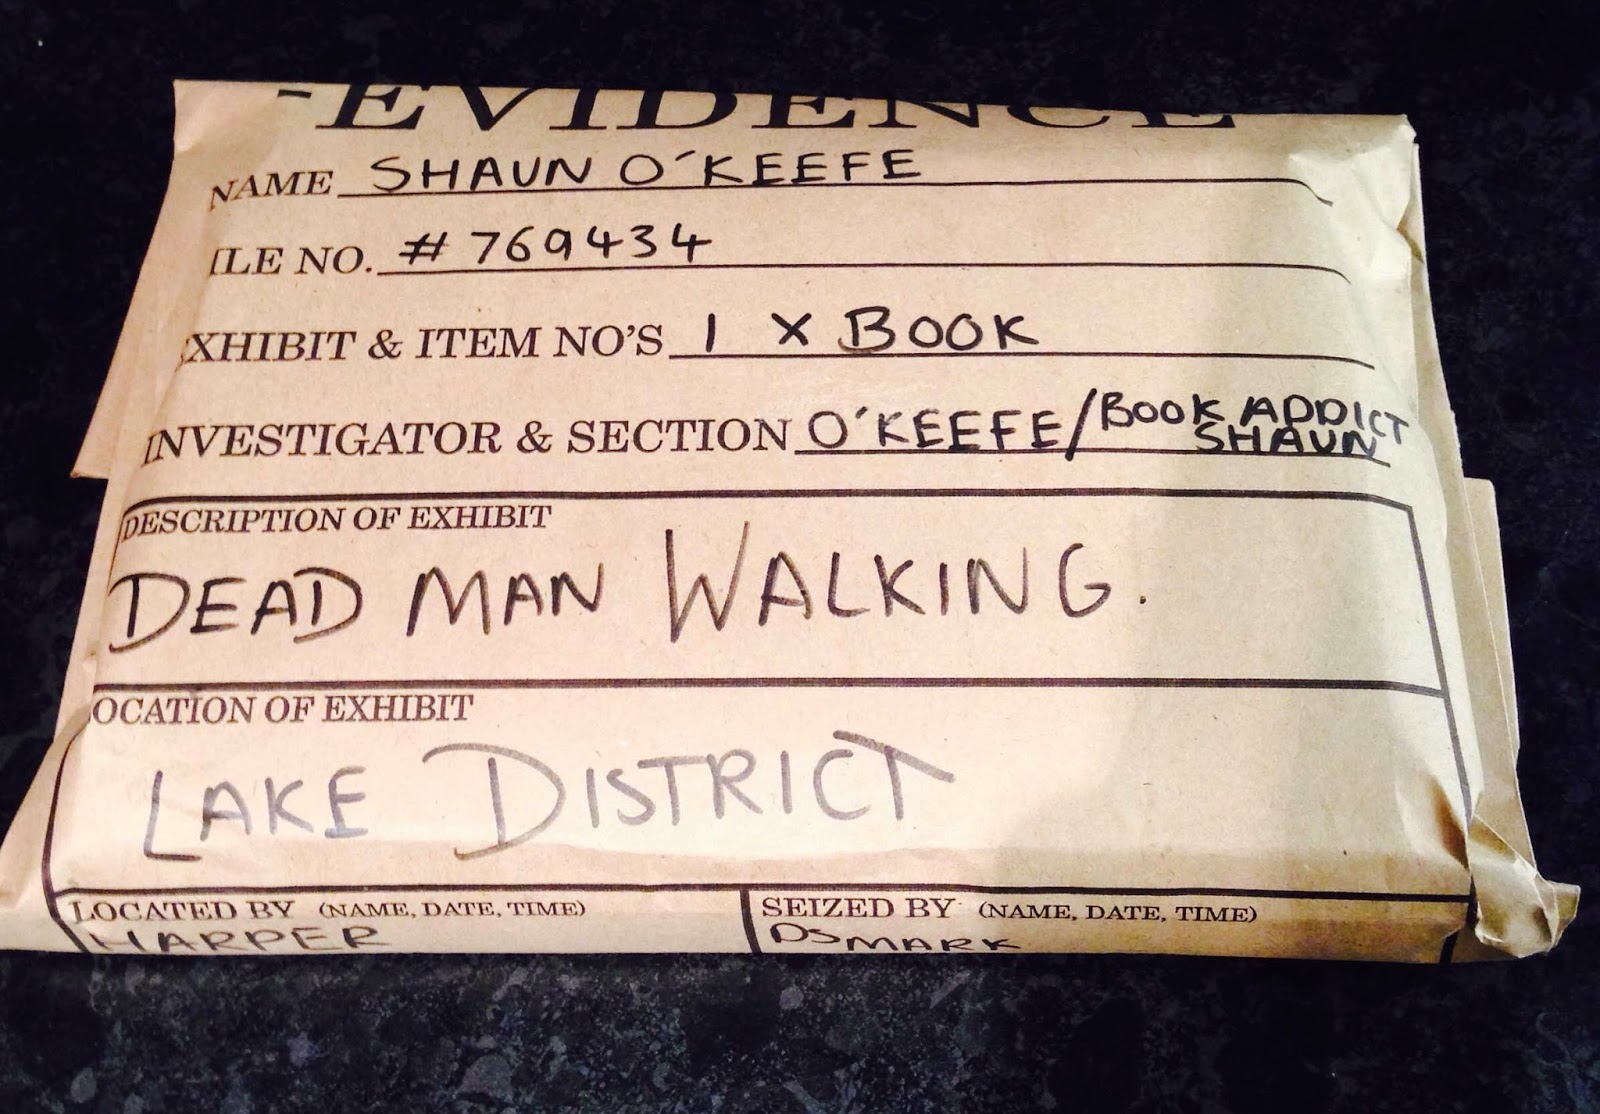 -EVIDENCE
NAME SHAUN O'KEEFE
ILE NO. # 769434
EXHIBIT & ITEM NO'S 1 X BOOK
INVESTIGATOR & SECTION O'KEEFE/BOOK ADDICT
SHAUN
DESCRIPTION OF EXHIBIT
DEAD MAN WALKING.
OCATION OF EXHIBIT
LAKE DISTRICT
LOCATED BY (NAME, DATE, TIME) SEIZED BY (NAME, DATE, TIME)
HARPER DS MARK